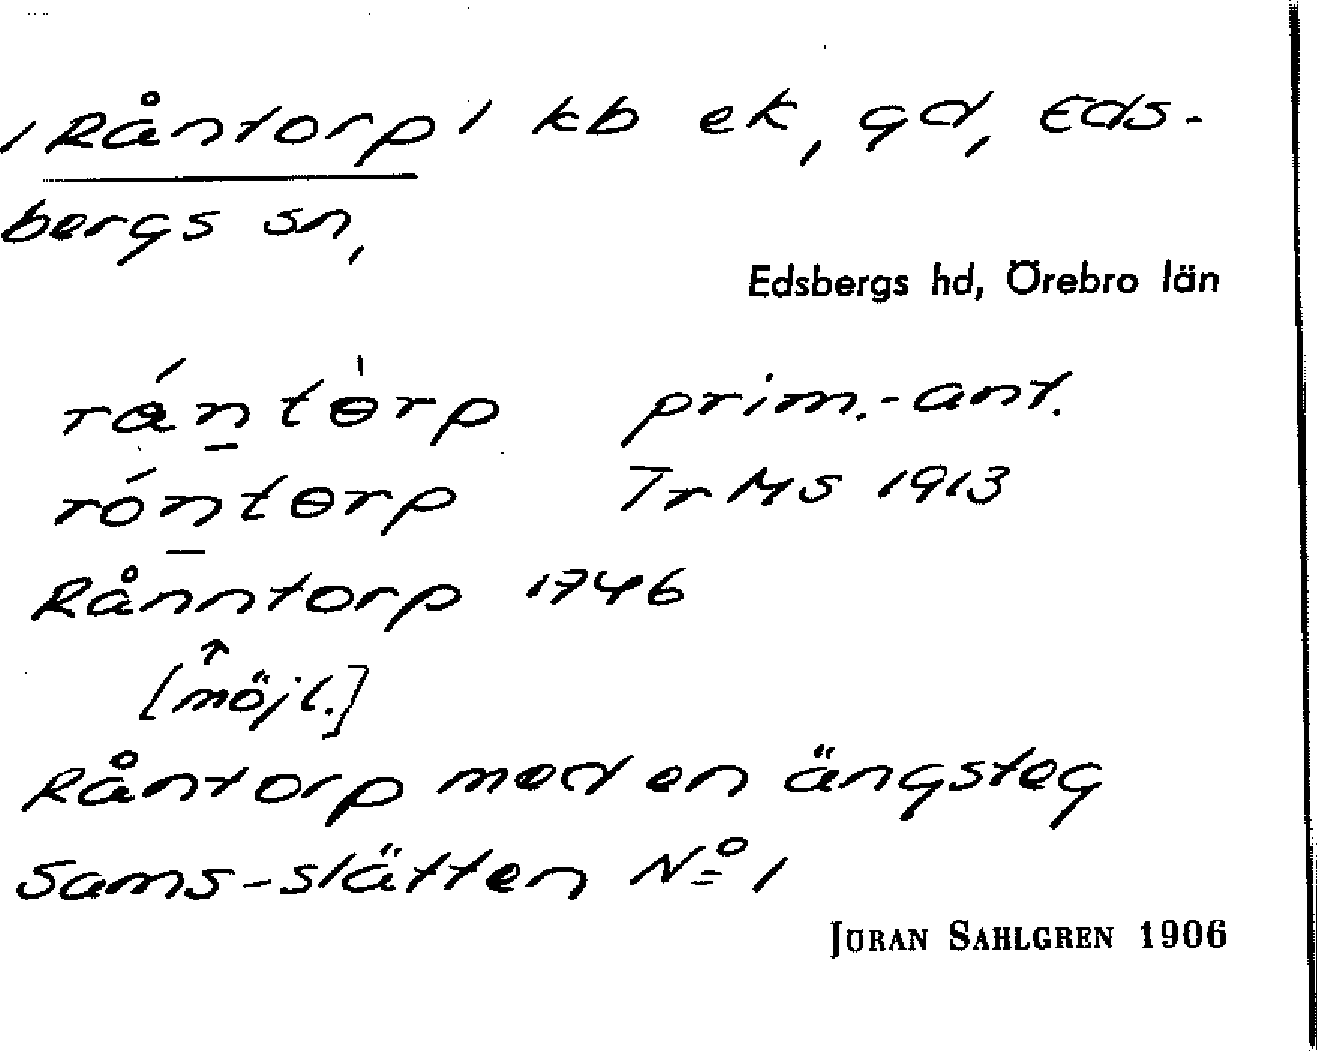 /Råntorp/ kb ek, gd, Eds-
bergs sn,
Edsbergs hd, Örebro län
rán̲tòrp prim.-ant.
rón̲tɵrp Tr MS 1913
Rånntorp 1746
↑
[möjl.]
Råntorp med en ängsteg
Sams-slätten No 1
JÖRAN SAHLGREN 1906